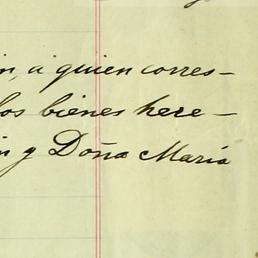 n, a quien corres-
los bienes here-
n y Doña María